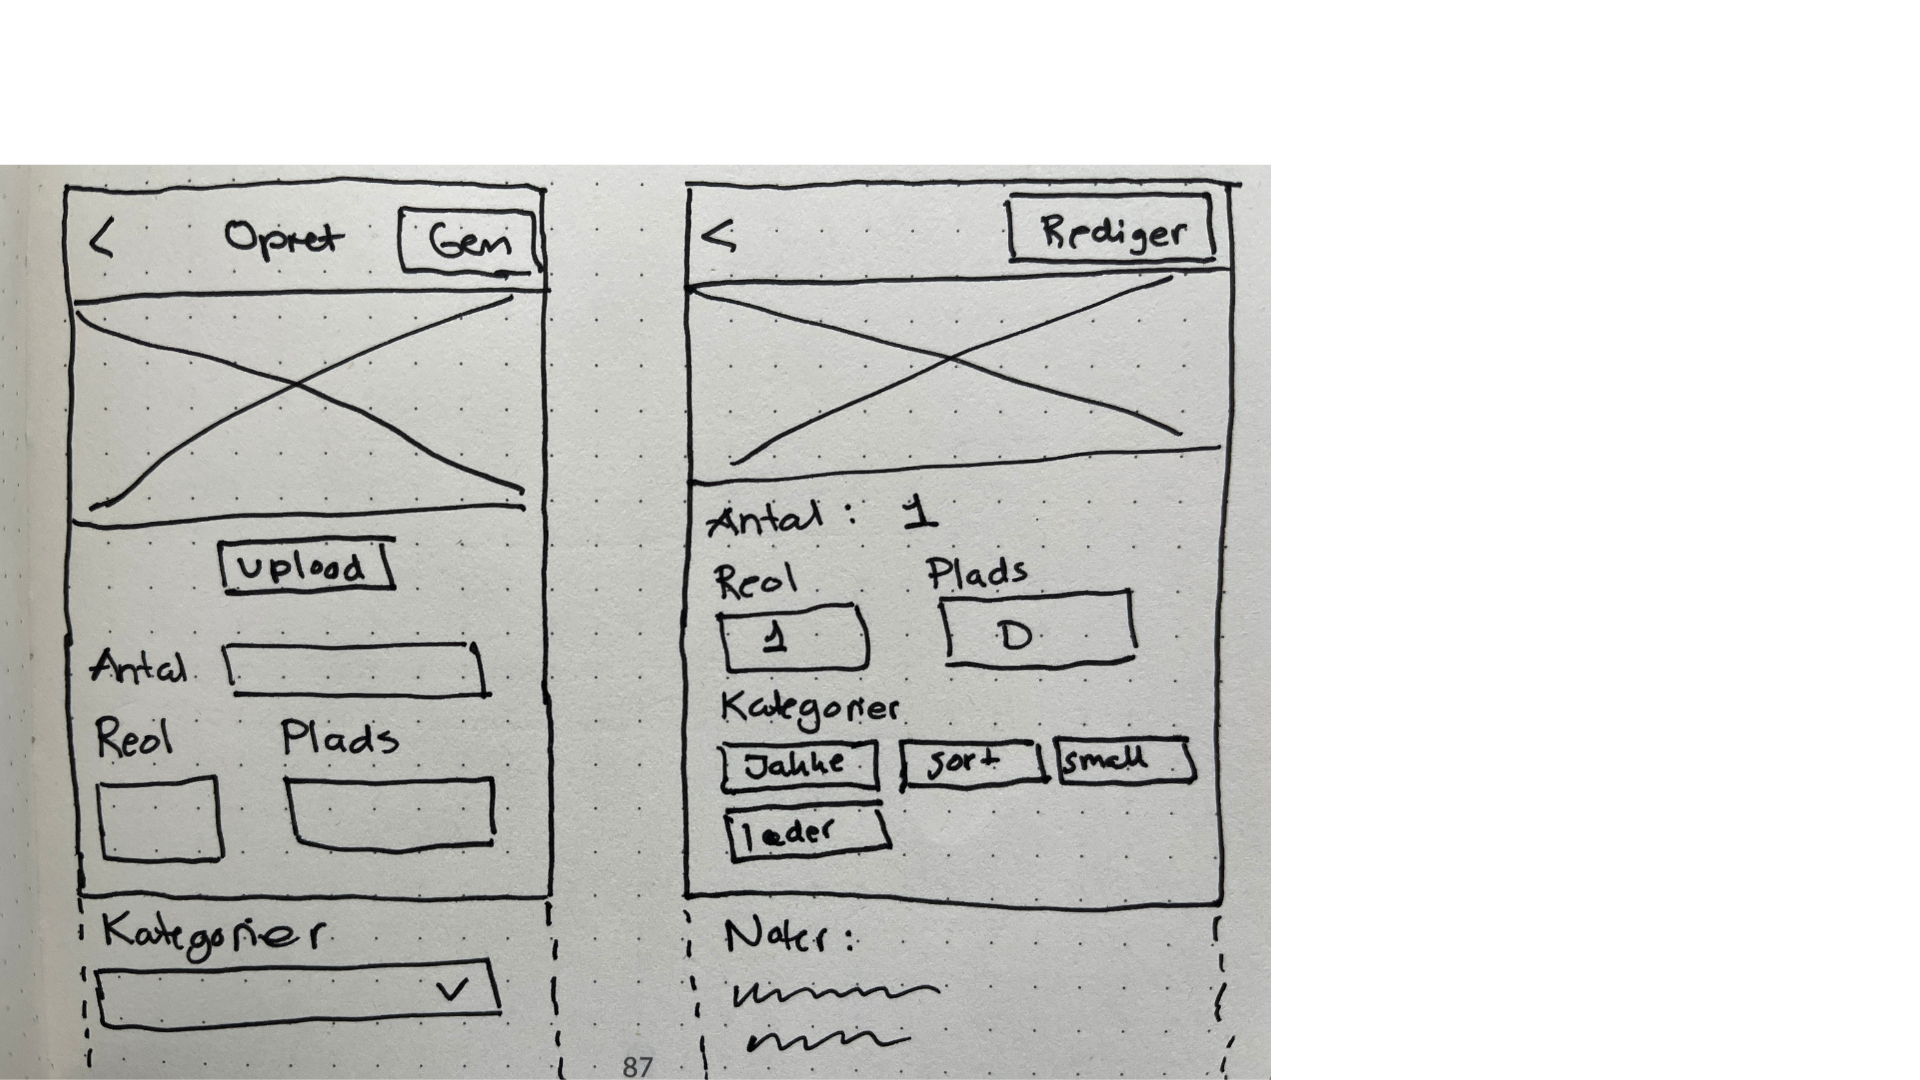 < Opret Gem
upload
Antal
Reol Plads
Kategorier
< Rediger
Antal : 1
Reol Plads
1 D
Kategorier
Jakke sort small
læder
Noter :
87